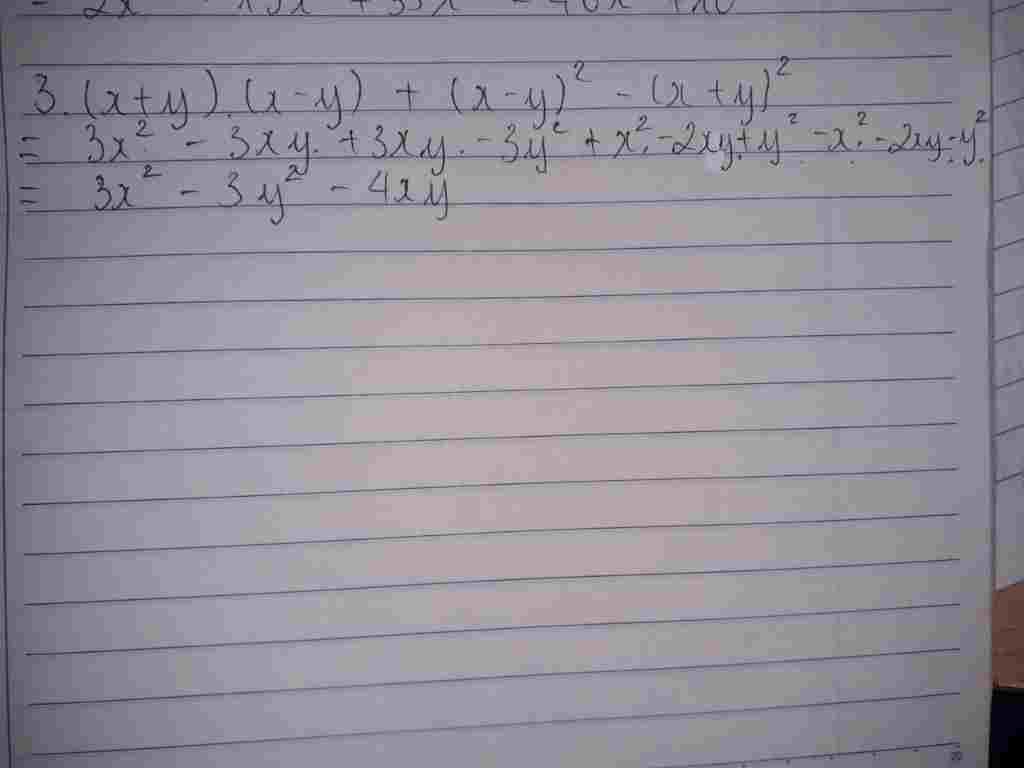 3.(x+y).(x-y) + (x-y)² - (x+y)²
= 3x² - 3xy + 3xy - 3y² + x² - 2xy + y² - x² - 2xy - y²
= 3x² - 3y² - 4xy